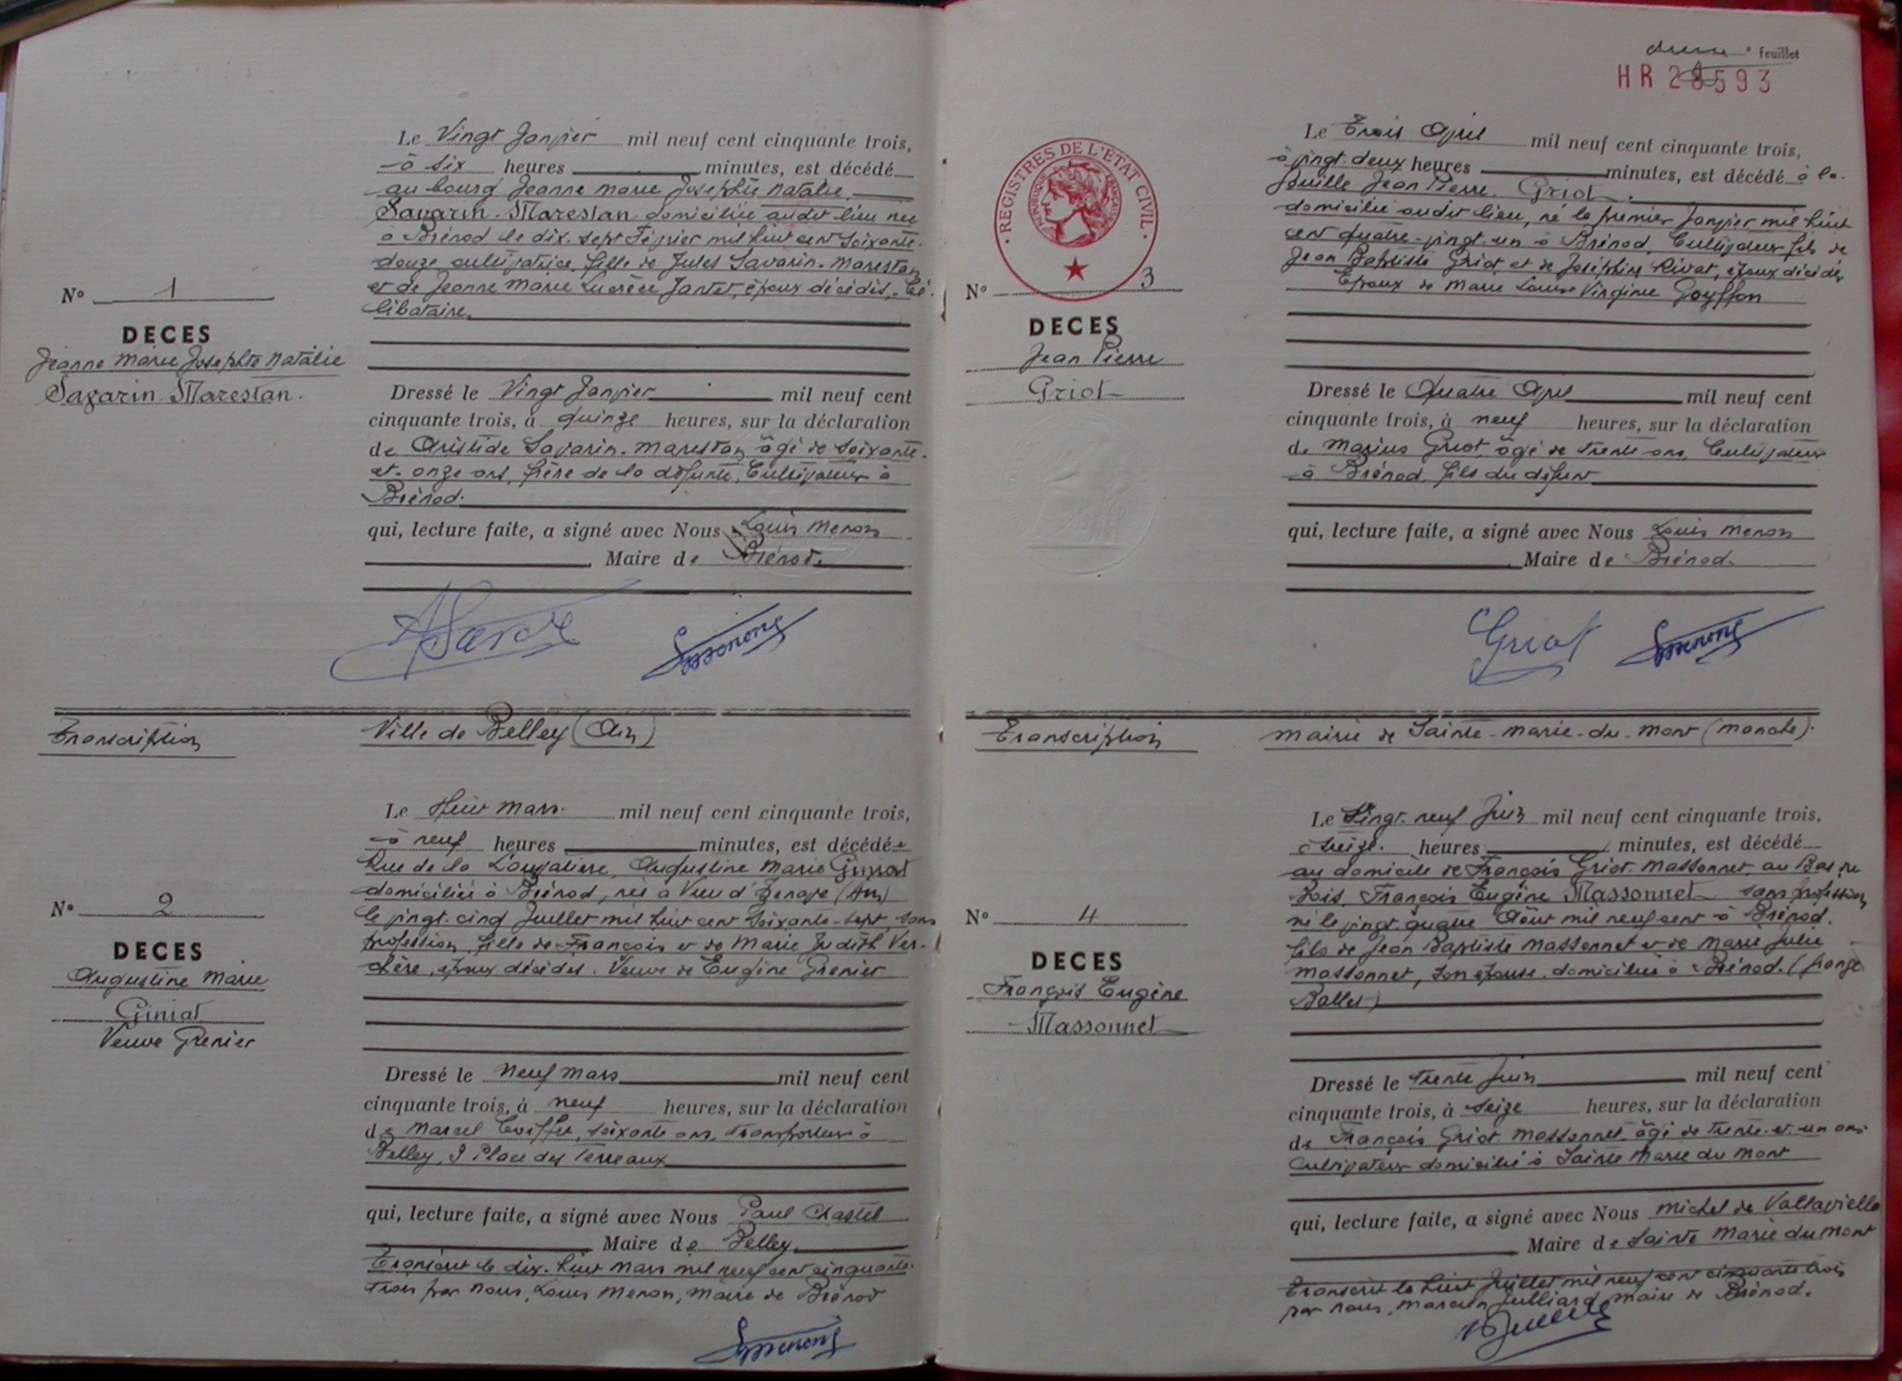 Le Vingt Janvier mil neuf cent cinquante trois,
à six heures minutes, est décédé
au bourg Jeanne Marie Josephte Natalie
Savarin-Marestan domiciliée audit lieu née
à Brénod le dix-sept Février mil huit cent soixante-
douze cultivatrice, fille de Jules Savarin-Marestan
et de Jeanne Marie Lucrèce Jantet, époux décédés. Cé-
libataire.
N° 1
DECES
Jeanne Marie Josephte Natalie
Savarin-Marestan.
Dressé le Vingt Janvier mil neuf cent
cinquante trois, à quinze heures, sur la déclaration
de Aristide Savarin-Marestan âgé de soixante-
et-onze ans, frère de la défunte, Cultivateur à
Brénod.
qui, lecture faite, a signé avec Nous Louis Menon
Maire de Brénod.
Transcription
Ville de Belley (Ain)
Le Huit Mars mil neuf cent cinquante trois,
à neuf heures minutes, est décédée
Rue de la Louvatière, Augustine Marie Giniat
domiciliée à Brénod, née à Vieu d'Izenave (Ain)
le vingt-cinq Juillet mil huit cent soixante-sept, sans
profession, fille de François et de Marie Judith Ver-
chère, époux décédés. Veuve de Eugène Grenier
N° 2
DECES
Augustine Marie
Giniat
Veuve Grenier
Dressé le Neuf Mars mil neuf cent
cinquante trois, à neuf heures, sur la déclaration
de Marcel soixante ans, Transporteur à
Belley, 9 Place des Terreaux
qui, lecture faite, a signé avec Nous Paul Chastel
Maire de Belley
Transcrit le dix-huit Mars mil neuf cent cinquante-
trois par Nous, Louis Menon, Maire de Brénod
feuillet
HR 28593
REGISTRES DE L'ETAT CIVIL
REPUBLIQUE FRANÇAISE
Le Trois Avril mil neuf cent cinquante trois,
à vingt-deux heures minutes, est décédé à la
Jean Pierre Griot
domicilié audit lieu, né le premier Janvier mil huit
cent quatre-vingt-un à Brénod, Cultivateur fils de
Jean Baptiste Griot et de Joséphine Rivat, époux décédés
Epoux de Marie Louise Virginie Goyffon
N° 3
DECES
Jean Pierre
Griot
Dressé le Quatre Avril mil neuf cent
cinquante trois, à neuf heures, sur la déclaration
de Marius Griot, âgé de trente ans, Cultivateur
à Brénod, fils du défunt
qui, lecture faite, a signé avec Nous Louis Menon
Maire de Brénod.
Griot
Transcription
Mairie de Sainte-Marie-du-Mont (Manche).
Le Vingt-neuf Juin mil neuf cent cinquante trois,
à treize heures minutes, est décédé
au domicile de François Griot-Massonnet, au Bas
Bois, François Eugène Massonnet sans profession
né le vingt quatre Août mil neuf cent à Brénod.
fils de Jean Baptiste Massonnet et de Marie Julie
Massonnet, son épouse, domiciliée à Brénod. (
N° 4
DECES
François Eugène
Massonnet
Dressé le Trente Juin mil neuf cent
cinquante trois, à seize heures, sur la déclaration
de François Griot Massonnet âgé de trente-et-un ans
Cultivateur domicilié à Sainte Marie du Mont
qui, lecture faite, a signé avec Nous Michel de Vallavielle
Maire de Sainte Marie du Mont
Transcrit le huit Juillet mil neuf cent cinquante trois
par Nous, Marcelin Julliard, Maire de Brénod.